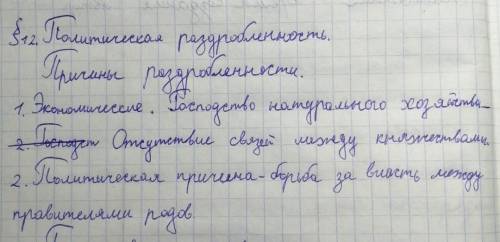 §12. Политическая раздробленность.
Причины раздробленности.
1. Экономические. Господство натурального хозяйства
2. Господст Отсутствие связей между княжествами.
2. Политическая причина-борьба за власть между
правителями родов.